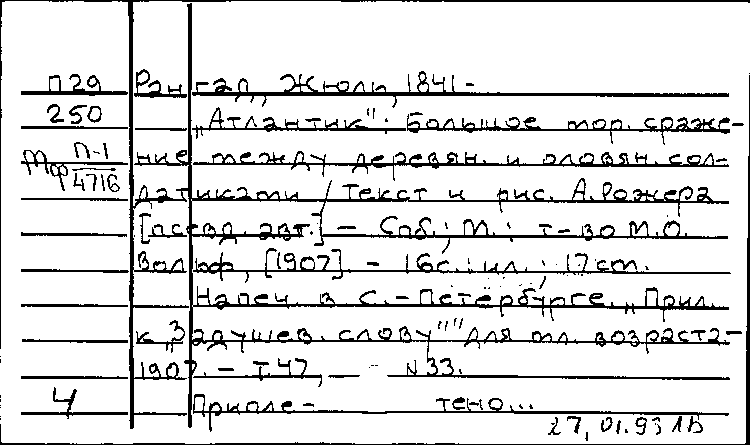 П29 Рангад, Жюли, 1841-
250 „Атлантик": Большое мор. сраже-
Мф П-1/4716 ние между деревян. и оловян. сол-
датиками / Текст и рис. А. Рожера
[псевд. авт.] - Спб.; М.: т-во М.О.
Вольф, [1907]. - 16с.: ил.; 17см.
Напеч. в С.-Петербурге. „Прил.
к „Задушев. слову"" для мл. возраста. -
1907. - Т.47, - N33.
4 Припле- тено...
27.01.93 ЛВ